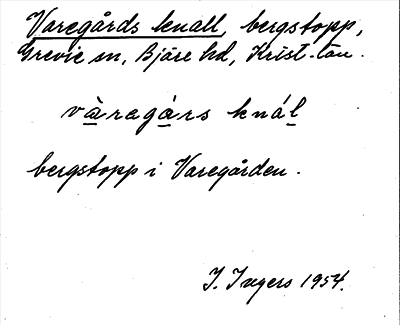 Varegårds knall, bergstopp,
Grevie sn, Bjäre hd, Krist. län.
vàragårs knál
bergstopp i Varegården.
I. Ingers 1954.